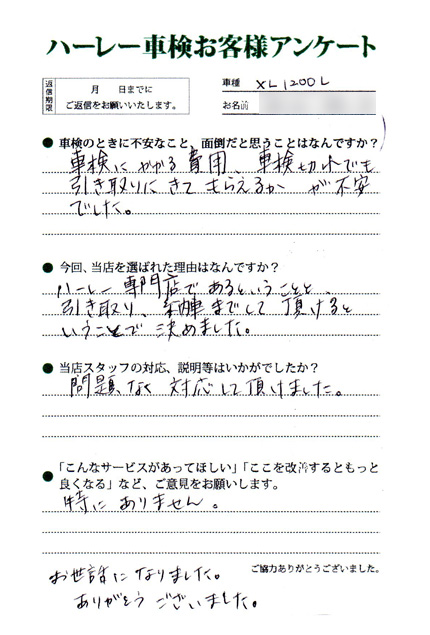 ハーレー車検お客様アンケート
返信期限
月　日までに
ご返信をお願いいたします。
車種 XL1200L
お名前
● 車検のときに不安なこと、面倒だと思うことはなんですか?
車検にかかる費用、車検切れでも
引き取りにきてもらえるか が不安
でした。
● 今回、当店を選ばれた理由はなんですか?
ハーレー専門店であるということと、
引き取り、納車までして頂けると
いうことで決めました。
● 当店スタッフの対応、説明等はいかがでしたか?
問題なく対応して頂けました。
● 「こんなサービスがあってほしい」「ここを改善するともっと
良くなる」など、ご意見をお願いします。
特にありません。
ご協力ありがとうございました。
お世話になりました。
ありがとうございました。